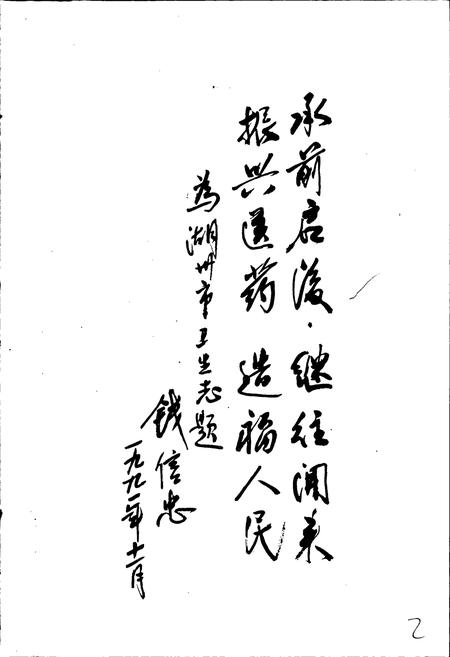 承前启后·继往开来
振兴医药 造福人民
为湖州市卫生志题
钱信忠
一九九一年十一月
2